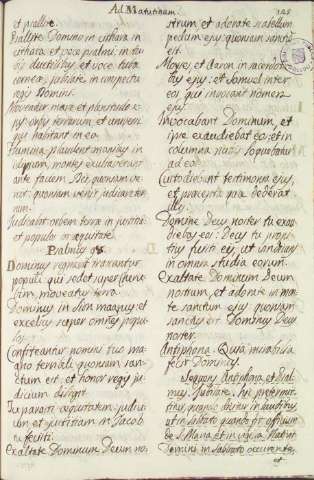 Ad Matutinam.
125
et psallite.
Psallite Domino in cithara in
cithara et voce psalmi: in tu
bis ductilibus et voce tubæ
corneæ, jubilate in conspectu
regis Domini.
Moveatur mare et plenitudo e-
jus: orbis terrarum et univer-
si habitant in ea.
Flumina plaudent manibus in
idipsum, montes exultaverunt
ante faciem Dei: quoniam ve-
nit: quoniam venit judicare ter
ram.
Judicabit orbem terræ in justitia:
et populos in æquitate.
Psalmus 98.
Dominus regnavit irascantur
populi: qui sedet super cheru-
bim, moveatur terra.
Dominus in Sion magnus: et
excelsus super omnes popu-
los.
Confiteantur nomini tuo ma-
gno terribile quoniam sanc-
tum est: et honor regis ju-
dicium diligit.
Tu parasti directiones: judici-
um et justitiam in Jacob
tu fecisti.
Exaltate Dominum Deum no-
strum, et adorate scabellum
pedum ejus quoniam sanctum
est.
Moyses et Aaron in sacerdoti-
bus ejus: et Samuel inter
eos qui invocant nomen
ejus.
Invocabant Dominum, et
ipse exaudiebat eos: et in
columna nubis loquebatur
ad eos.
Custodiebant testimonia ejus,
et præceptum quod dederat
illis.
Domine Deus noster tu exau-
diebas eos: Deus tu propi-
tius fuisti eis, et ulciscens
in omnia studia eorum.
Exaltate Dominum Deum
nostrum, et adorate in mon-
te sancto ejus quoniam
sanctus est Dominus Deus
noster.
Antiphona. Quia mirabilia
fecit Dominus.
Sequens Antiphona et Psal-
mus Jubilate, hic prætermit-
titur, quando dicitur in laudibus,
ut in Sabbato quando fit officium
de S. Maria et in
Domini in Sabbato occurrente,
et